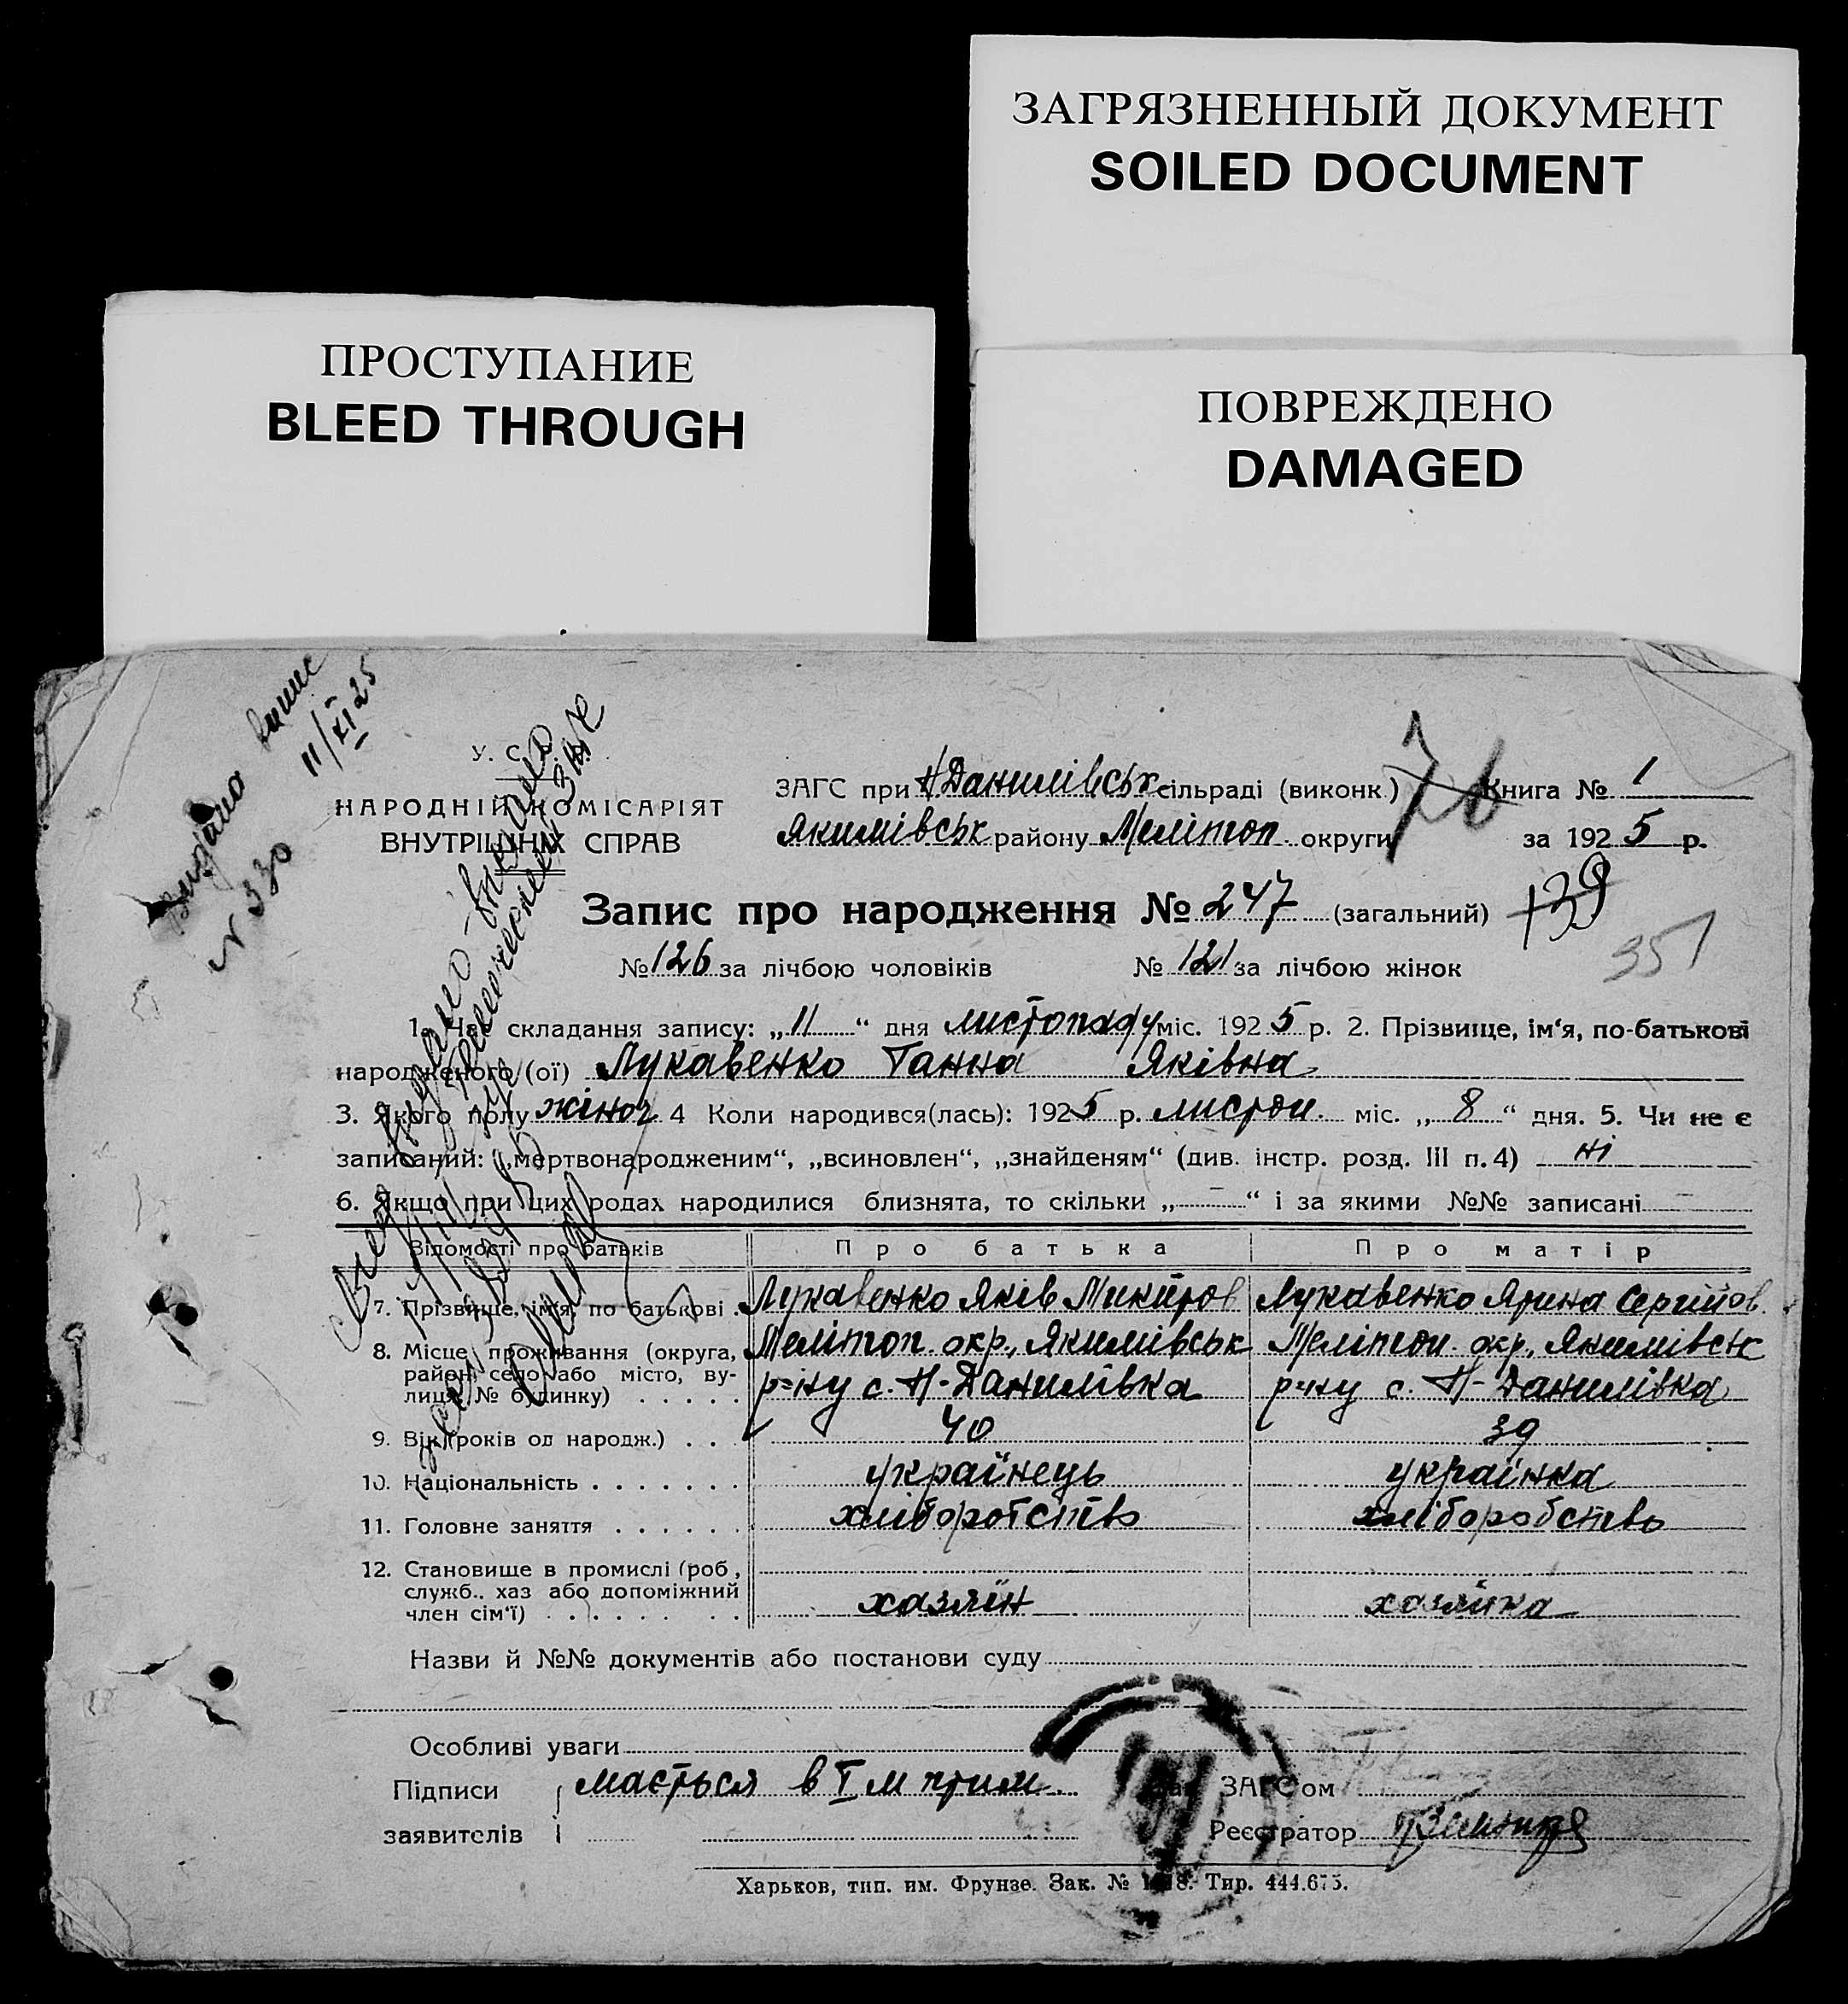 ЗАГРЯЗНЕННЫЙ ДОКУМЕНТ
SOILED DOCUMENT
ПРОСТУПАНИЕ
BLEED THROUGH
ПОВРЕЖДЕНО
DAMAGED
Видано випис
11/XI 25
N 330
У. С.
НАРОДНІЙ КОМІСАРІЯТ
ВНУТРІШНІХ СПРАВ
ЗАГС при Н Данилівськ сільраді (виконк.) Книга № 1
Якимівськ району Меліпоп. округи за 1925 р.
76
Запис про народження № 247 (загальний) 139
351
№ 126 за лічбою чоловіків № 121 за лічбою жінок
1. Час складання запису: „11“ дня листопаду міс. 1925 р. 2. Прізвище, ім‘я, по-батькові
народженого (ої) Лукавенко Ганна Яківна
3. Якого полу жіноч 4 Коли народився(лась): 1925 р. листоп. міс. „8“ дня. 5. Чи не є
записаний: „мертвонародженим“, „всиновлен“, „знайденям“ (див. інстр. розд. III п. 4) ні
6. Якщо при цих родах народилися близнята, то скільки „ – “ і за якими №№ записані –
Відомості про батьків Про батька Про матір
7. Прізвище, ім‘я, по батькові . Лукавенко Яків Микитов Лукавенко Ярина Сергійов.
8. Місце проживання (округа, Меліпоп. окр., Якимівськ Меліпоп. окр., Якимівськ
район, село або місто, ву-
лиця, № будинку) . . . . . р-ну с. Н-Данилівка р-ну с. Н-Данилівка
9. Вік (років од народж.) . . . 40 39
10. Національність . . . . . . . українець українка
11. Головне заняття . . . . . . хліборобство хліборобство
12. Становище в промислі (роб.,
служб., хаз або допоміжний
член сім‘ї) . . . . . . . . хазяїн хазяйка
Назви й №№ документів або постанови суду
Особливі уваги
Підписи мається в I м прим. Зав. ЗАГС‘ом
заявителів Реєстратор
Харьков, тип. им. Фрунзе. Зак. № Тир. 444.675.